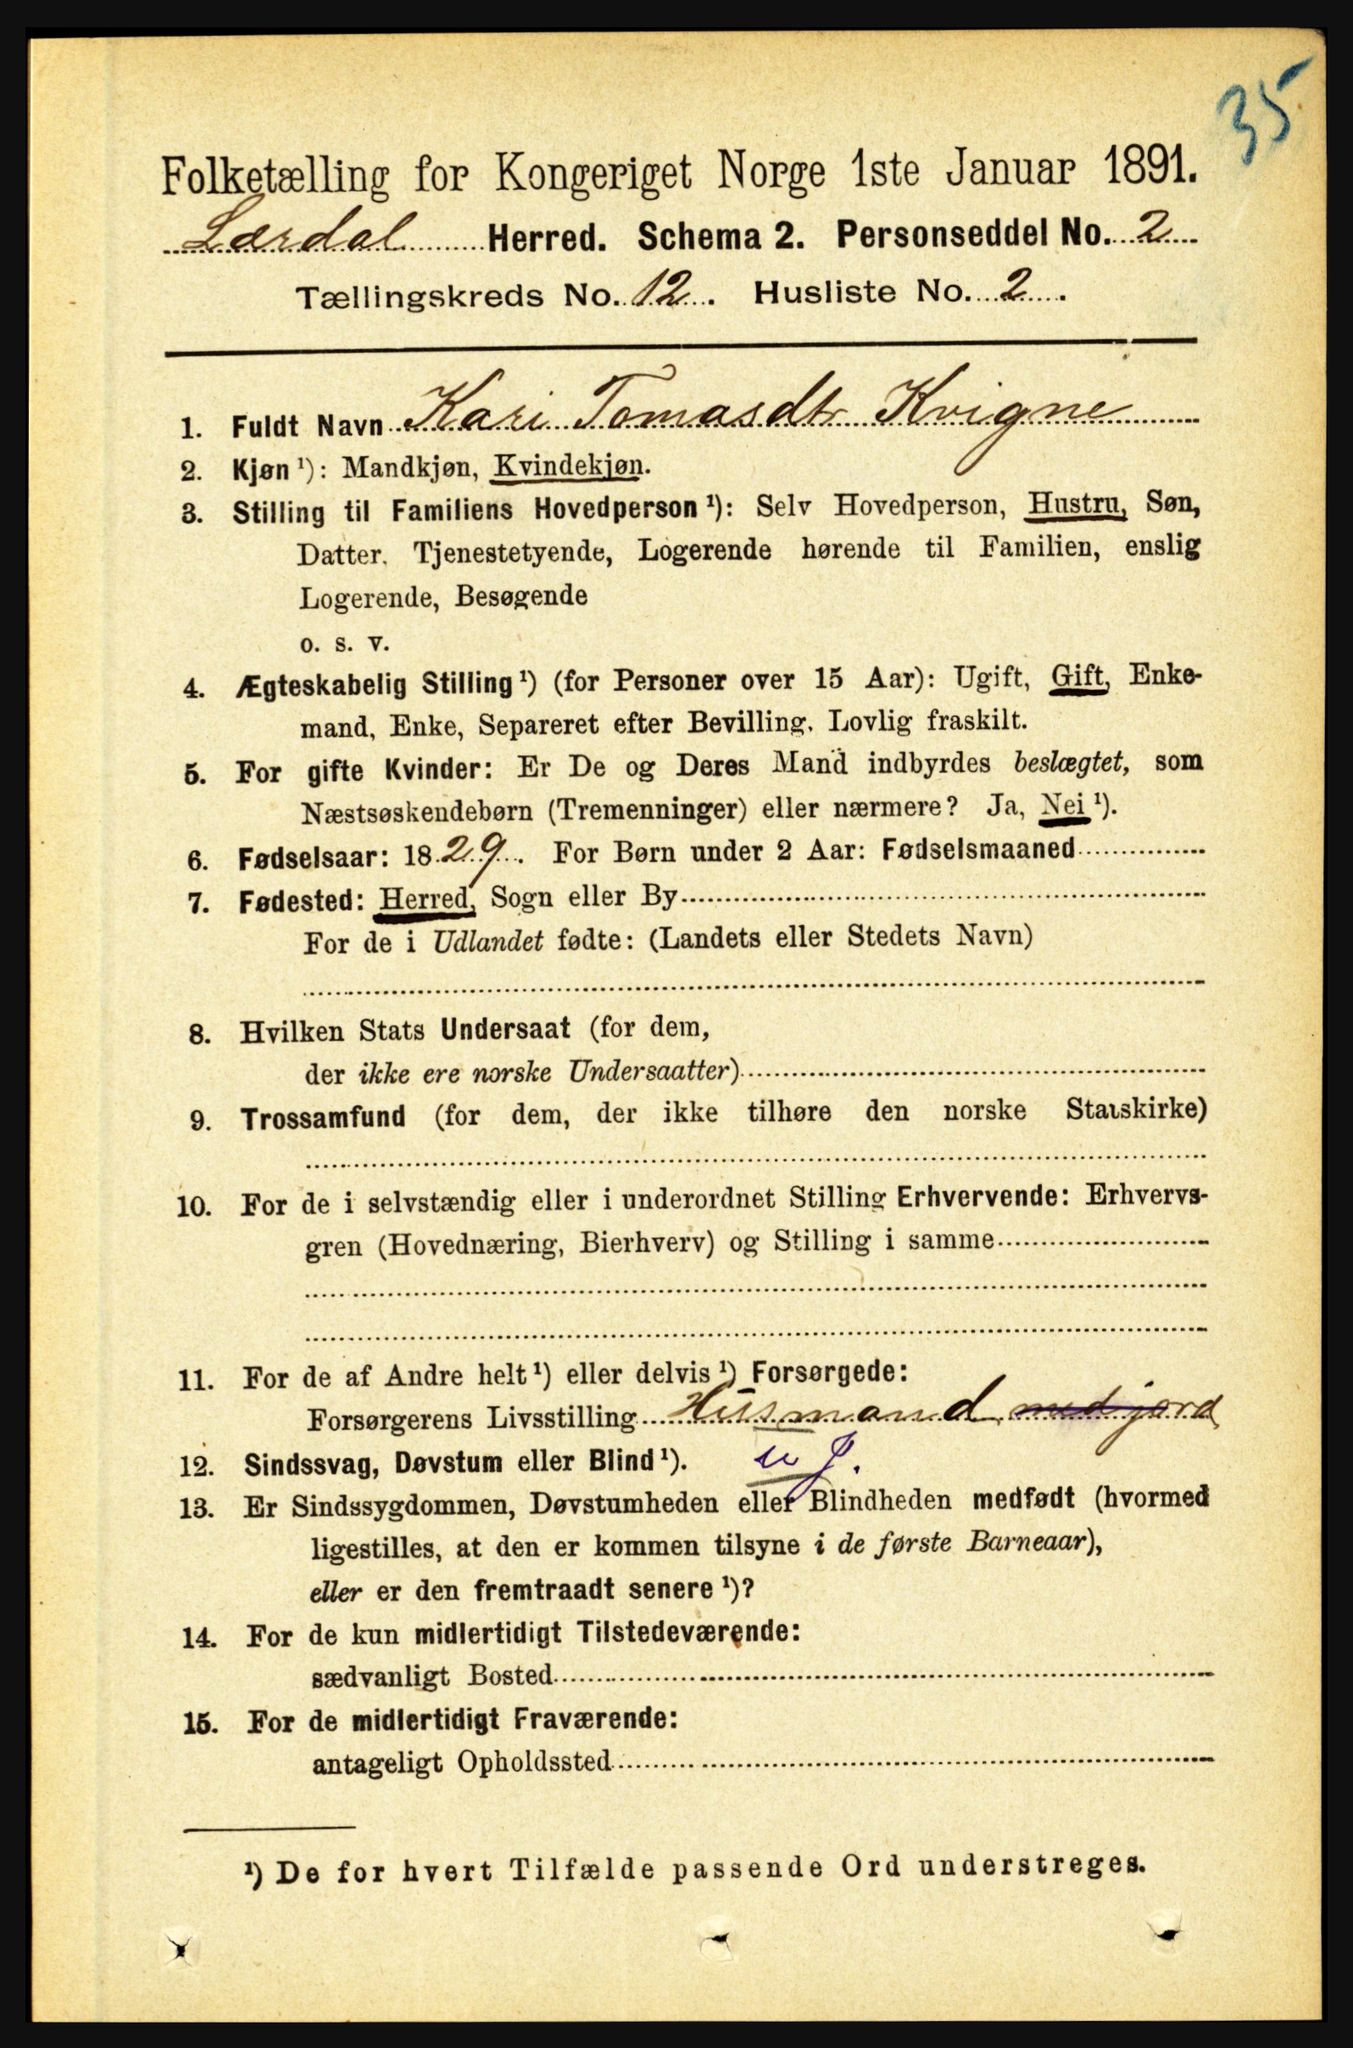 35
Folketælling for Kongeriget Norge 1ste Januar 1891.
Lærdal Herred. Schema 2. Personseddel No. 2
Tællingskreds No. 12. Husliste No. 2.
1. Fuldt Navn Kari Tomasdtr Kvigne
2. Kjøn ¹): Mandkjøn, Kvindekjøn.
3. Stilling til Familiens Hovedperson ¹): Selv Hovedperson, Hustru, Søn,
Datter, Tjenestetyende, Logerende hørende til Familien, enslig
Logerende, Besøgende
o. s. v.
4. Ægteskabelig Stilling ¹) (for Personer over 15 Aar): Ugift, Gift, Enke-
mand, Enke, Separeret efter Bevilling, Lovlig fraskilt.
5. For gifte Kvinder: Er De og Deres Mand indbyrdes beslægtet, som
Næstsøskendebørn (Tremenninger) eller nærmere? Ja, Nei ¹).
6. Fødselsaar: 1829. For Børn under 2 Aar: Fødselsmaaned
7. Fødested: Herred, Sogn eller By
For de i Udlandet fødte: (Landets eller Stedets Navn)
8. Hvilken Stats Undersaat (for dem,
der ikke ere norske Undersaatter)
9. Trossamfund (for dem, der ikke tilhøre den norske Statskirke)
10. For de i selvstændig eller i underordnet Stilling Erhvervende: Erhvervs-
gren (Hovednæring, Bierhverv) og Stilling i samme
11. For de af Andre helt ¹) eller delvis ¹) Forsørgede:
Forsørgerens Livsstilling Husmand med jord
12. Sindssvag, Døvstum eller Blind ¹). u J.
13. Er Sindssygdommen, Døvstumheden eller Blindheden medfødt (hvormed
ligestilles, at den er kommen tilsyne i de første Barneaar),
eller er den fremtraadt senere ¹)?
14. For de kun midlertidigt Tilstedeværende:
sædvanligt Bosted
15. For de midlertidigt Fraværende:
antageligt Opholdssted
¹) De for hvert Tilfælde passende Ord understreges.